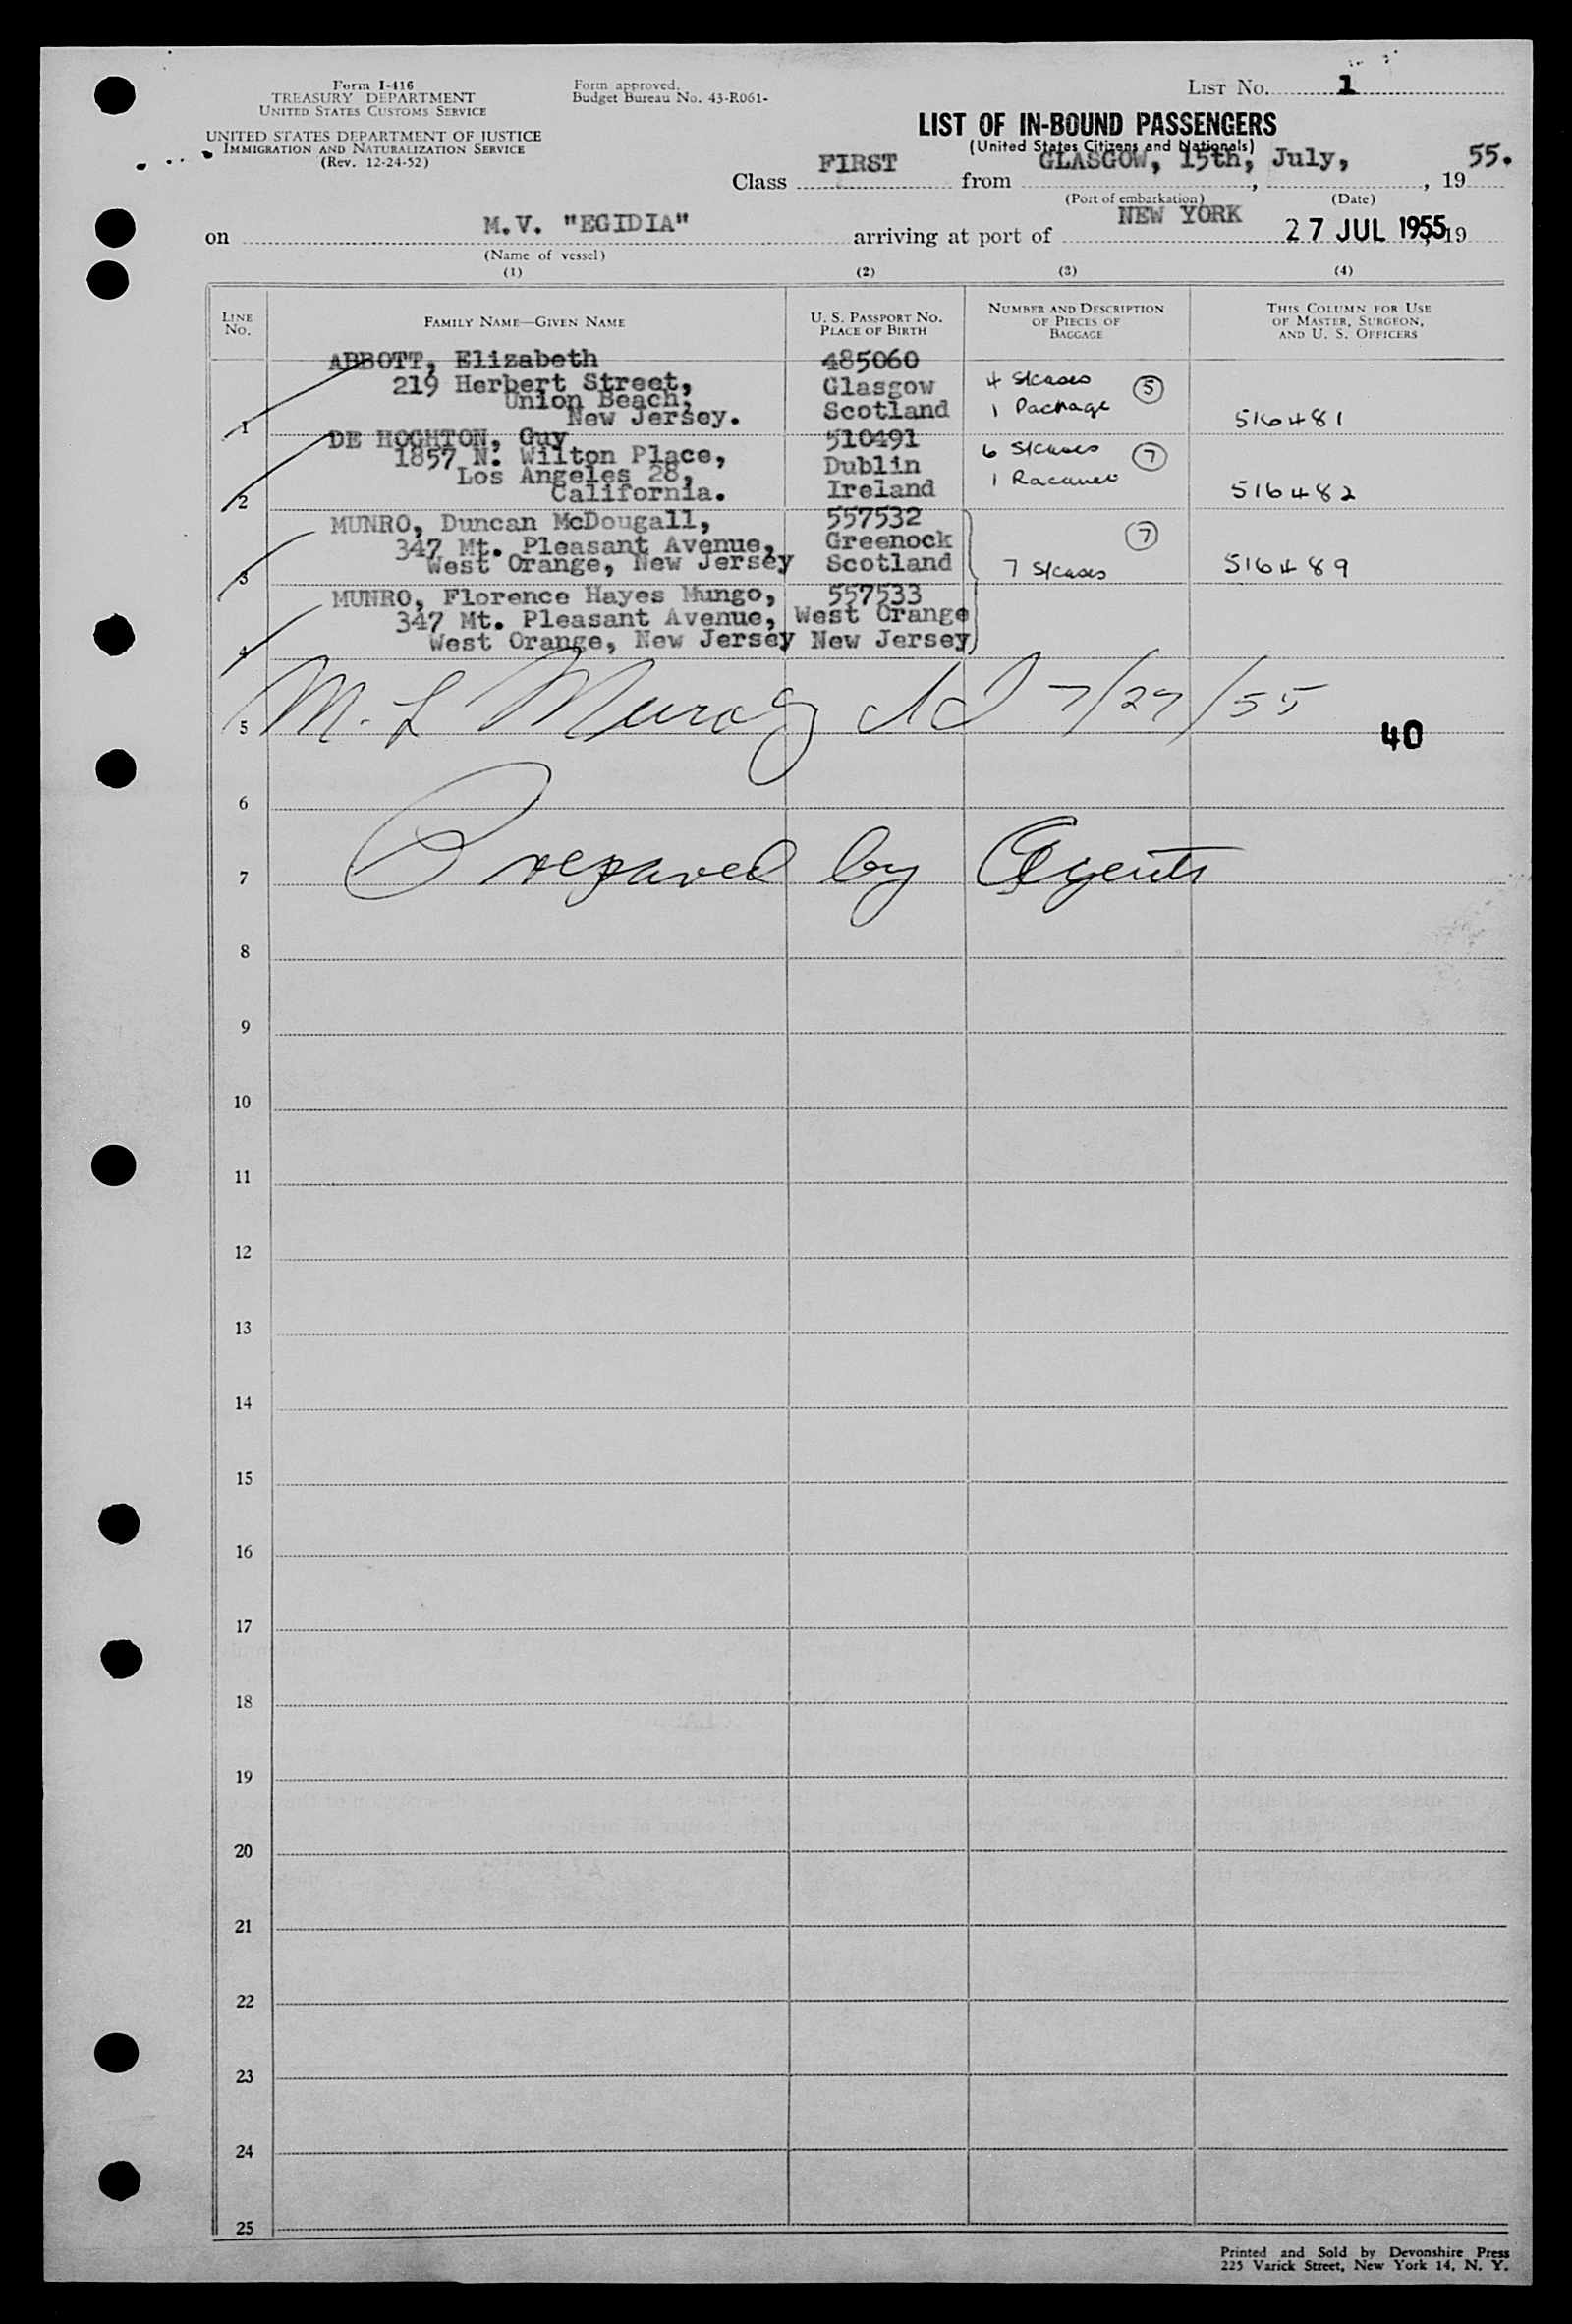 Form I-416
TREASURY DEPARTMENT
UNITED STATES CUSTOMS SERVICE
UNITED STATES DEPARTMENT OF JUSTICE
IMMIGRATION AND NATURALIZATION SERVICE
(Rev. 12-24-52)
Form approved.
Budget Bureau No. 43-R061-
LIST NO. 1
LIST OF IN-BOUND PASSENGERS
(United States Citizens and Nationals)
Class FIRST from GLASGOW, 15th, July, , 19 55.
(Port of embarkation) (Date)
on M.V. "EGIDIA" arriving at port of NEW YORK 27 JUL 1955, 19
(Name of vessel)
(1) (2) (3) (4)
LINE NO. FAMILY NAME—GIVEN NAME U. S. PASSPORT NO. PLACE OF BIRTH NUMBER AND DESCRIPTION OF PIECES OF BAGGAGE THIS COLUMN FOR USE OF MASTER, SURGEON, AND U. S. OFFICERS
ABBOTT, Elizabeth 485060
219 Herbert Street, Glasgow 4 S/cases 5
Union Beach, 1 Package
1 New Jersey. Scotland 516481
DE HOGHTON, Guy 510491
1857 N. Wilton Place, Dublin 6 S/cases 7
Los Angeles 28, 1
2 California. Ireland 516482
MUNRO, Duncan McDougall, 557532
347 Mt. Pleasant Avenue, Greenock 7
3 West Orange, New Jersey Scotland 7 S/cases 516489
MUNRO, Florence Hayes Mungo, 557533
347 Mt. Pleasant Avenue, West Orange
4 West Orange, New Jersey New Jersey
5 M. L Murray 7/27/55
40
6
7 Prepared by Agents
8
9
10
11
12
13
14
15
16
17
18
19
20
21
22
23
24
25
Printed and Sold by Devonshire Press
225 Varick Street, New York 14, N. Y.